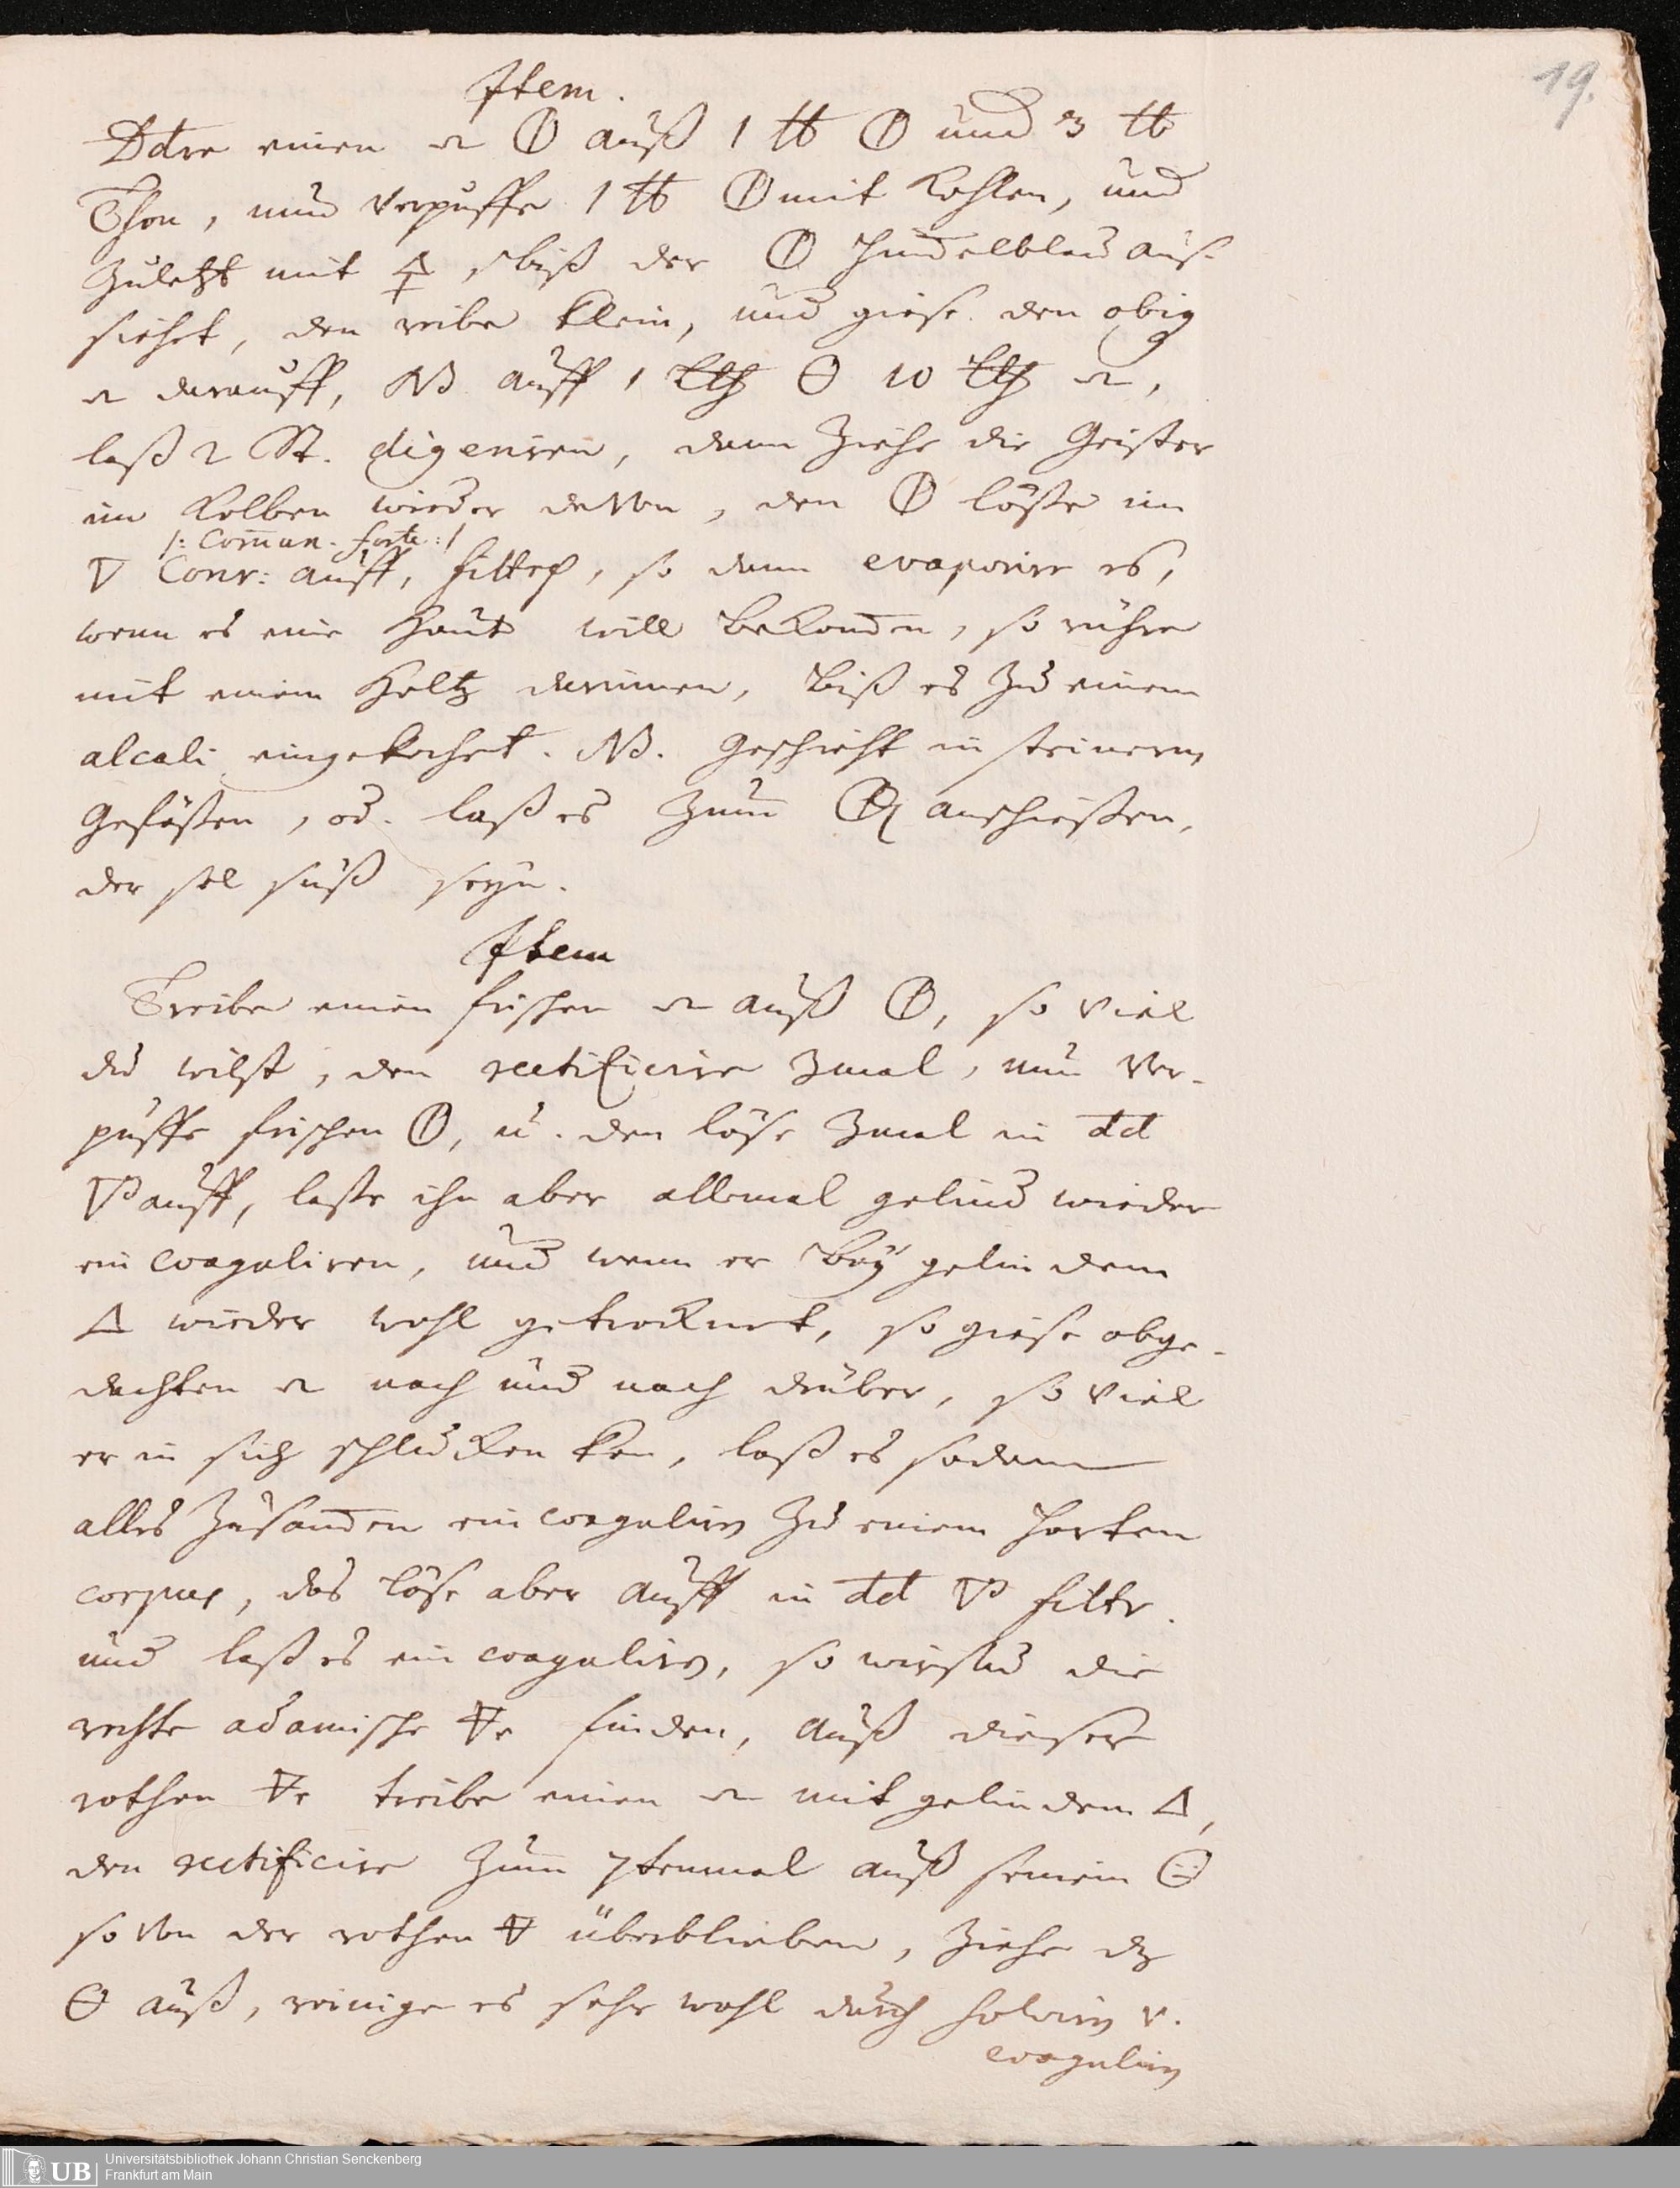 19.
Item.
Ddire einen 🜐 🜕 auß 1 ℔ 🜕 und 3 ℔
Thon, nun verpuffe 1 ℔ 🜕 mit Kohlen, und
zuletzt mit 🜍, biß der 🜕 himelblau auß-
siehet, den reibe klein, und giese den obig
darauff, NB auff 1 🜔 10
laß 2 St. digeriren, dann ziehe die Geister
im Kolben wieder davon, den 🜕 löße im
/: Comun. forte :/
🜄 Conr: auff, filtrir, so dann evaporire es,
wenn es eine Haut will bekomen, so rühre
mit einem Holtz darinnen, biß es zu einem
alcali eingekochet. NB. geschieht in steinern
Gefäßen, od. laß es zum anschießen,
der sol süß seyn.
Item
Treibe einen frischen auß 🜕, so viel
du wilst, den rectificire 3mal, nun ver-
puffe frischen 🜕, u. den löse 3mal in dd
🜄 auff, laße ihn aber allemal gelind wieder
ein coaguliren, und wenn er bey gelindem
🜂 wieder wohl getrocknet, so giese obge-
dachten nach und nach drüber, so viel
er in sich schlucken kan, laß es sodann
alles zusamen ein coagulirn zu einem harten
corpus, das löse aber auff in dd 🜄 filtr.
und laß es ein coagulirn, so wirstu die
rechte adamische 🜃e finden, auß dieser
rothen 🜃e treibe einen mit gelindem 🜂,
den rectificire zum 7tenmal auß seinem 🜔
so von der rothen 🜃 überblieben, ziehe dz
🜔 auß, reinige es sehr wohl durch solvirn v.
coagulirn
UB Universitätsbibliothek Johann Christian Senckenberg
Frankfurt am Main